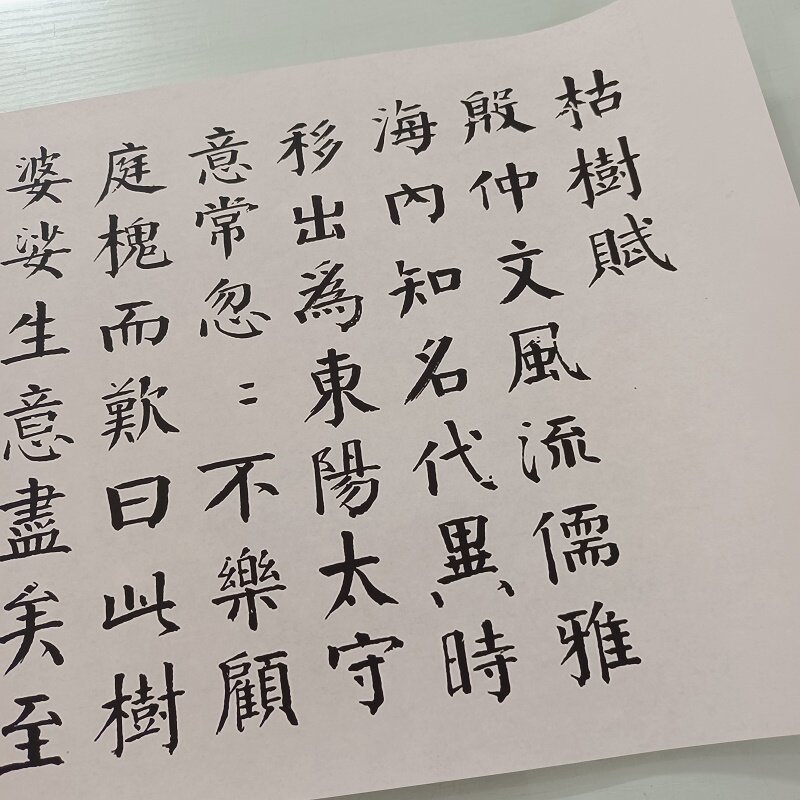 枯樹賦
殷仲文風流儒雅
海內知名代異時
移出為東陽太守
意常忽〻不樂顧
庭槐而歎曰此樹
婆娑生意盡矣至